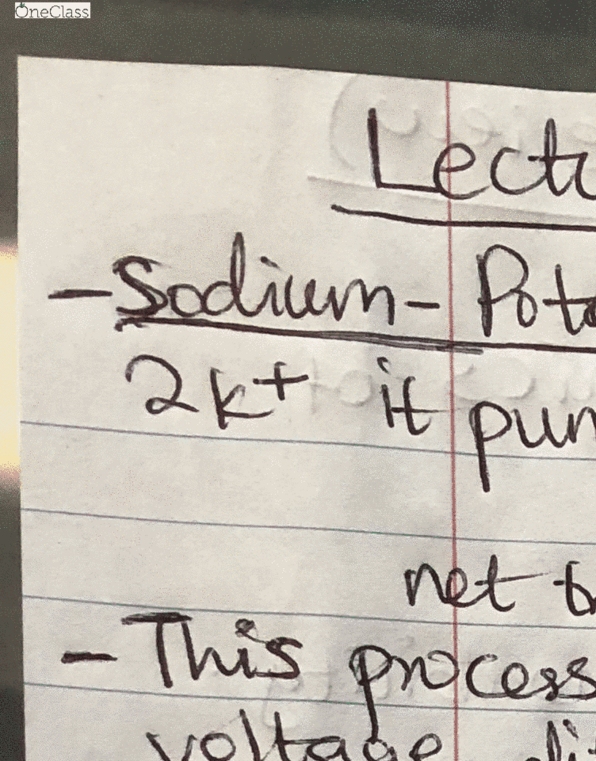 OneClass
Lectu
- Sodium - Pota
2k+ it pum
net tr
- This process
voltage di